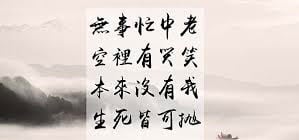 無事忙中老
空裡有哭笑
本來沒有我
生死皆可拋